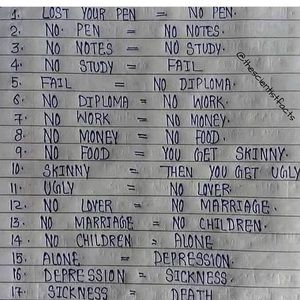 1. LOST YOUR PEN = NO PEN.
2. NO PEN = NO NOTES.
3. NO NOTES = NO STUDY.
4. NO STUDY = FAIL
5. FAIL = NO DIPLOMA.
6. NO DIPLOMA = NO WORK.
7. NO WORK = NO MONEY.
8. NO MONEY = NO FOOD.
9. NO FOOD = YOU GET SKINNY.
10. SKINNY = THEN YOU GET UGLY
11. UGLY = NO LOVER.
12. NO LOVER = NO MARRIAGE.
13. NO MARRIAGE = NO CHILDREN.
14. NO CHILDREN = ALONE
15. ALONE = DEPRESSION.
16. DEPRESSION = SICKNESS.
17. SICKNESS = DEATH
@thescientistfacts